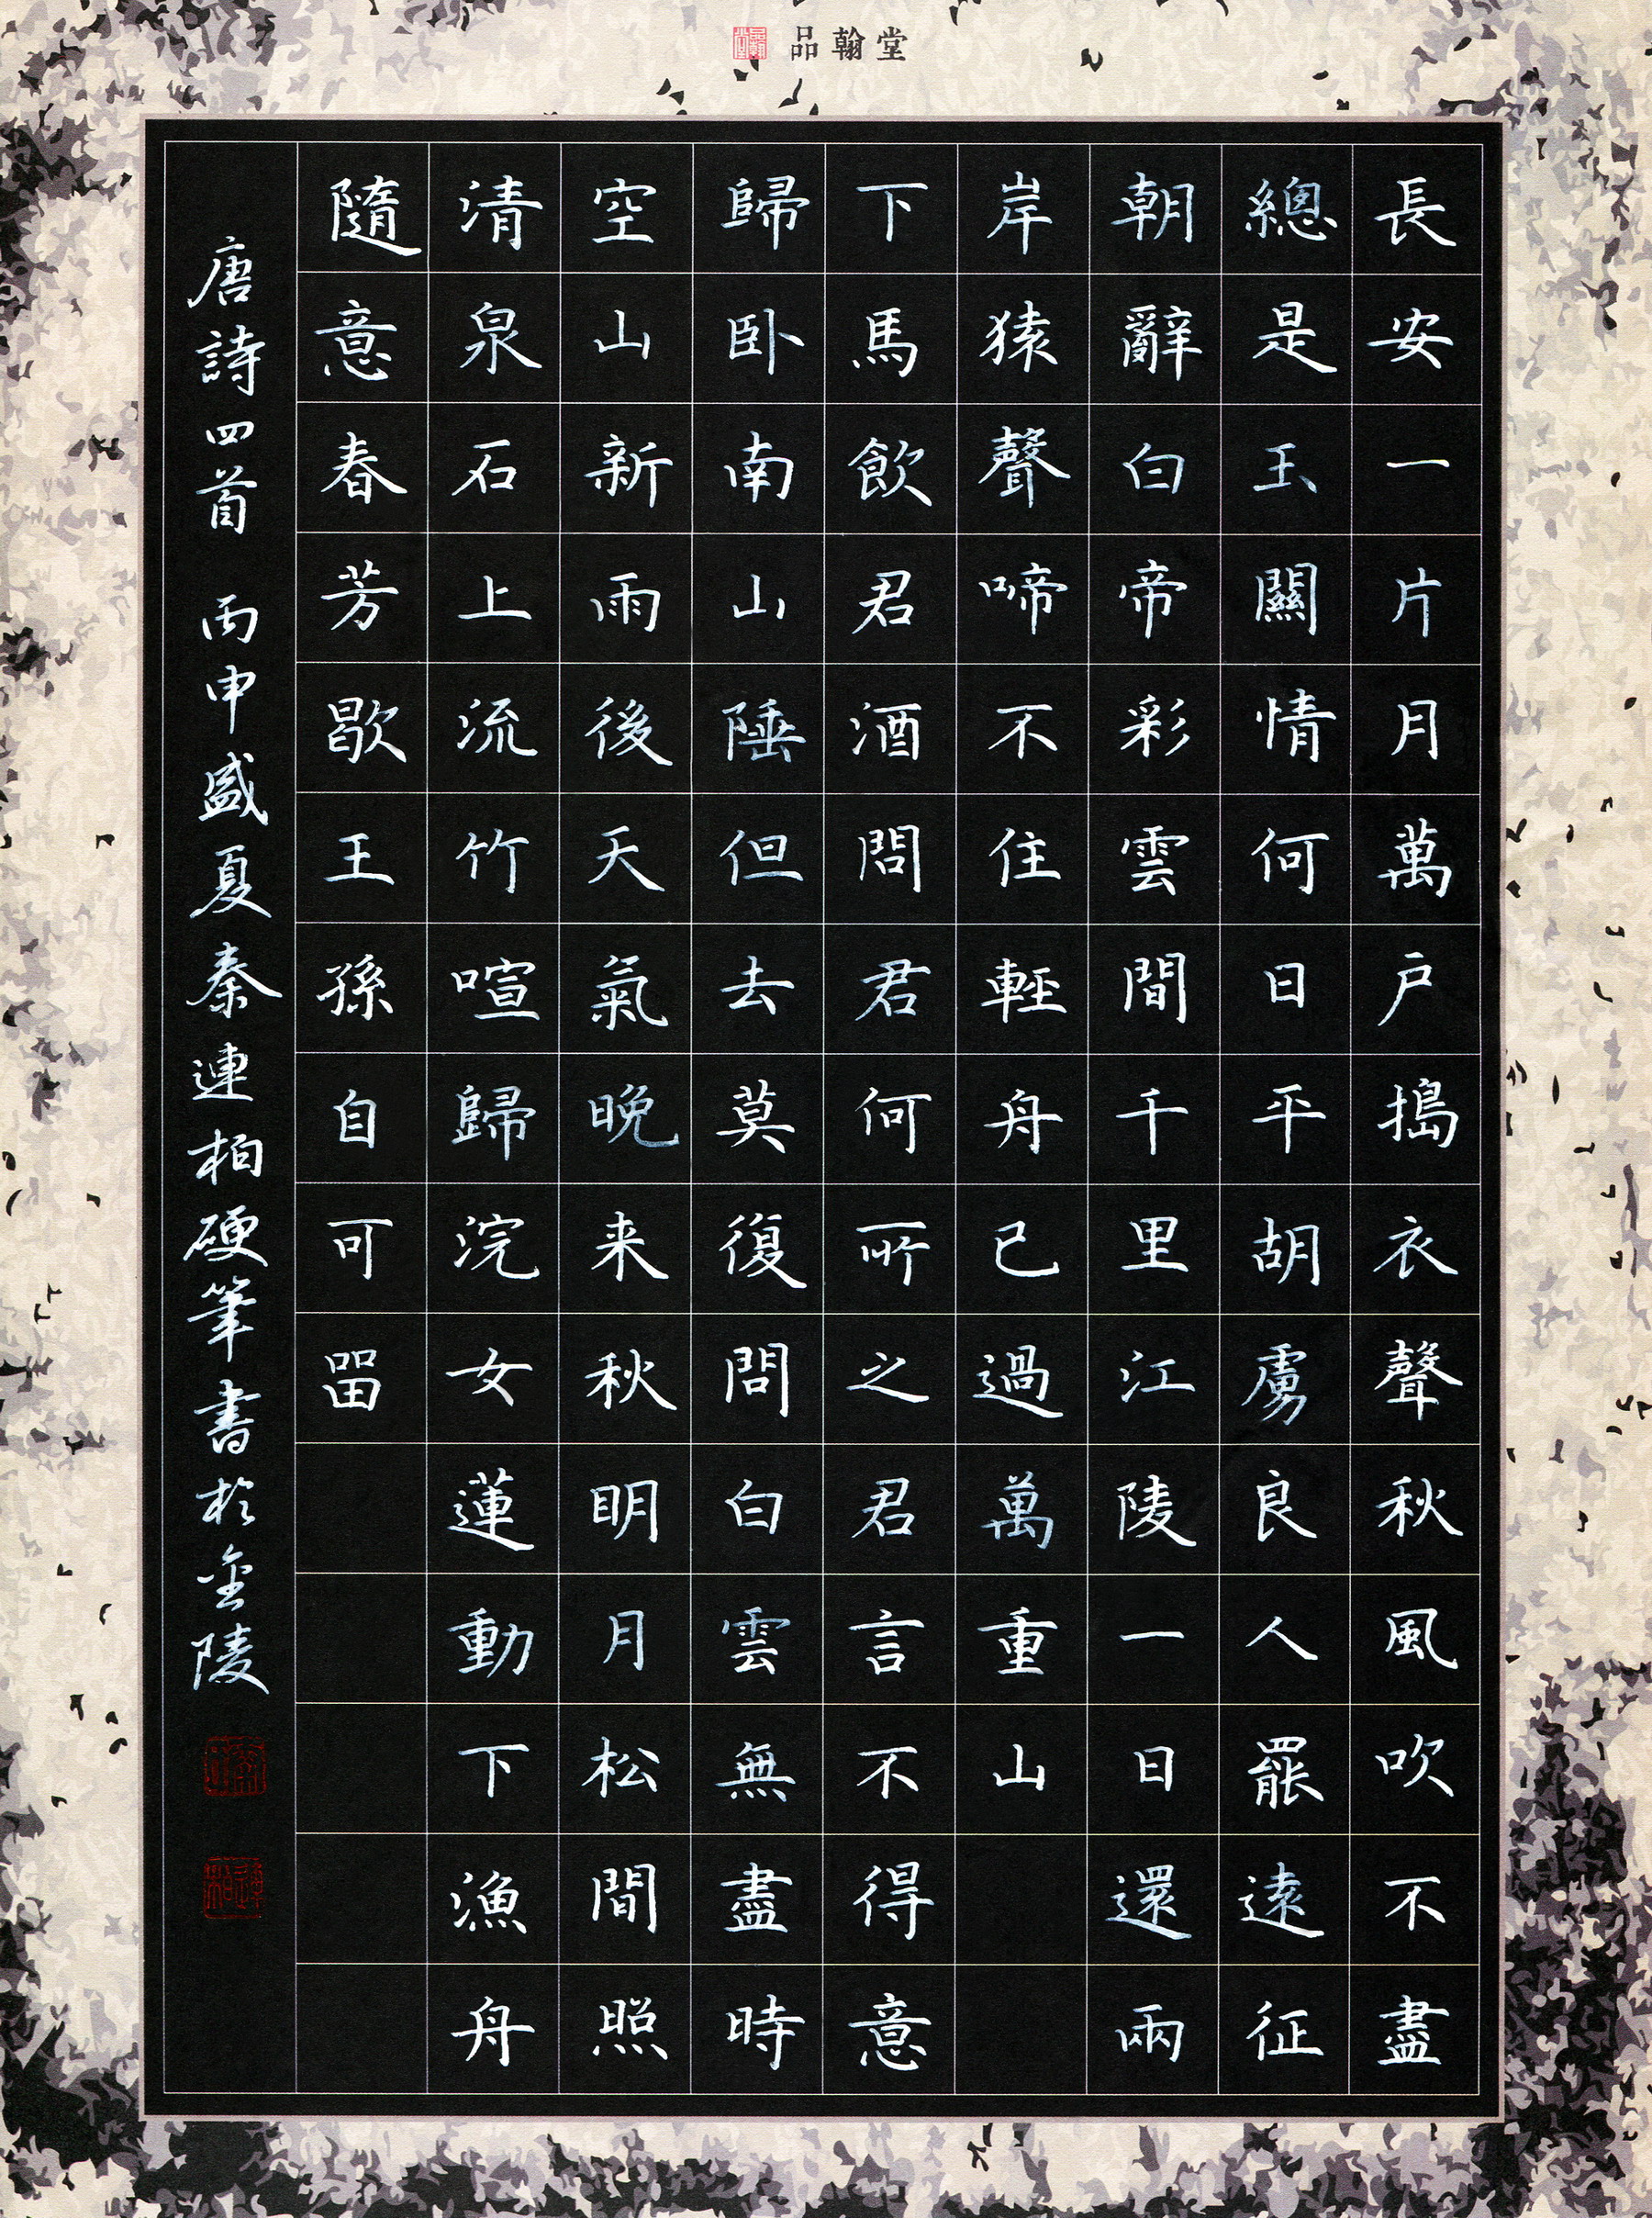 品翰堂
長安一片月萬戸搗衣聲秋風吹不盡
總是玉關情何日平胡虜良人罷遠征
朝辭白帝彩雲間千里江陵一日還兩
岸猿聲啼不住輕舟已過萬重山
下馬飲君酒問君何所之君言不得意
歸卧南山陲但去莫復問白雲無盡時
空山新雨後天氣晚来秋明月松間照
清泉石上流竹喧歸浣女蓮動下漁舟
隨意春芳歇王孫自可留
唐詩四首 丙申盛夏秦連柏硬筆書於金陵